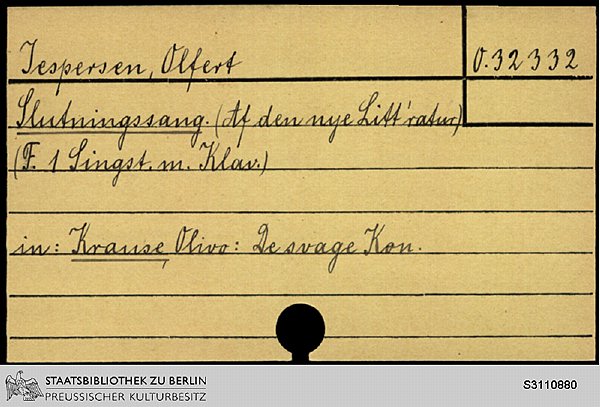 Jespersen, Olfert
O. 32 332
Slutningssang. (Af den nye Litt'ratur)
(F. 1 Singst. m. Klav.)
in: Krause, Olivo: De svage Køn.
STAATSBIBLIOTHEK ZU BERLIN
PREUSSISCHER KULTURBESITZ
S3110880